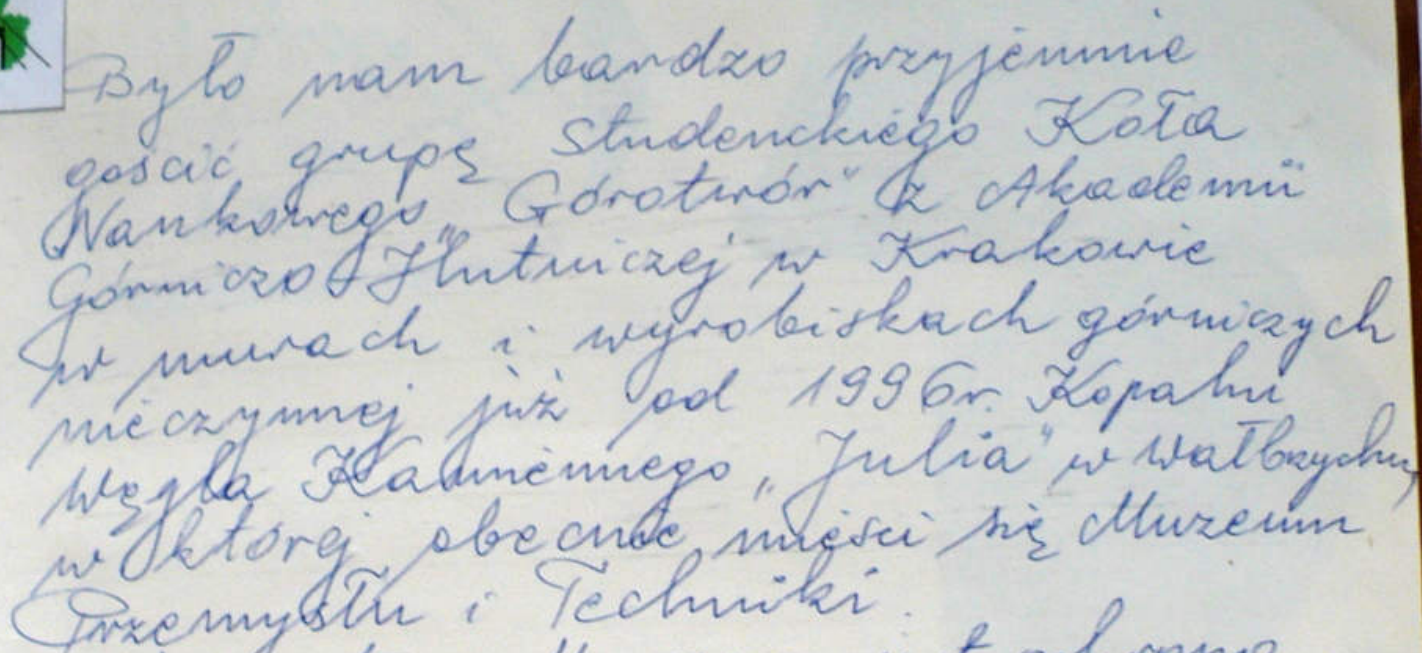 Było nam bardzo przyjemnie
gościć grupę Studenckiego Koła
Naukowego „Górotwór" z Akademii
Górniczo Hutniczej w Krakowie
w murach i wyrobiskach górniczych
nieczynnej już od 1996r. Kopalni
Węgla Kamiennego „Julia" w Wałbrzychu,
w której obecnie mieści się Muzeum
Przemysłu i Techniki.